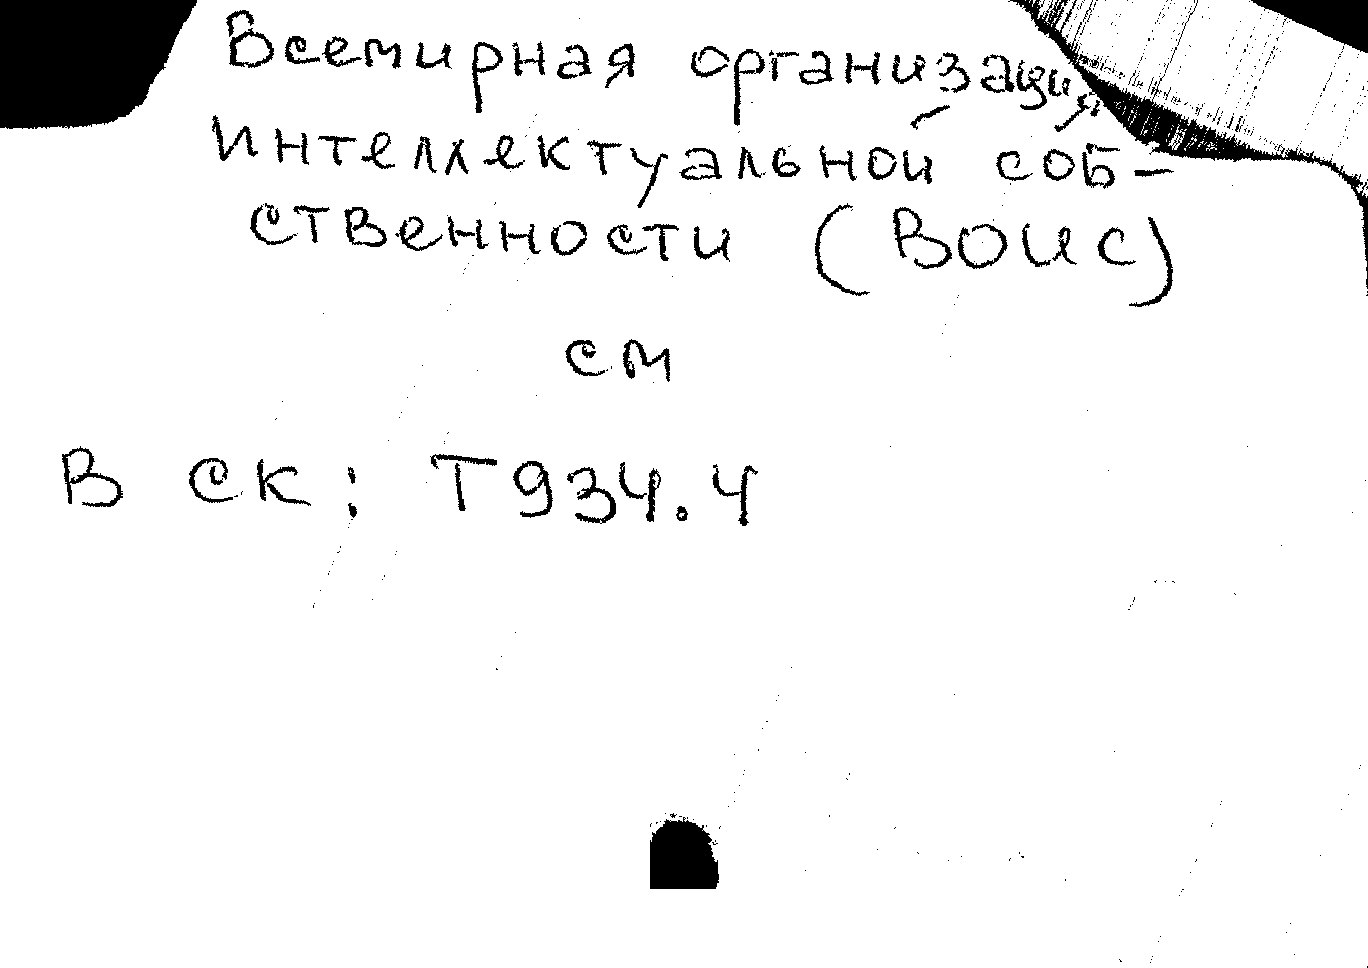 Всемирная организация
интеллектуальной соб-
ственности (ВОИС)
см
В СК: Т934.4